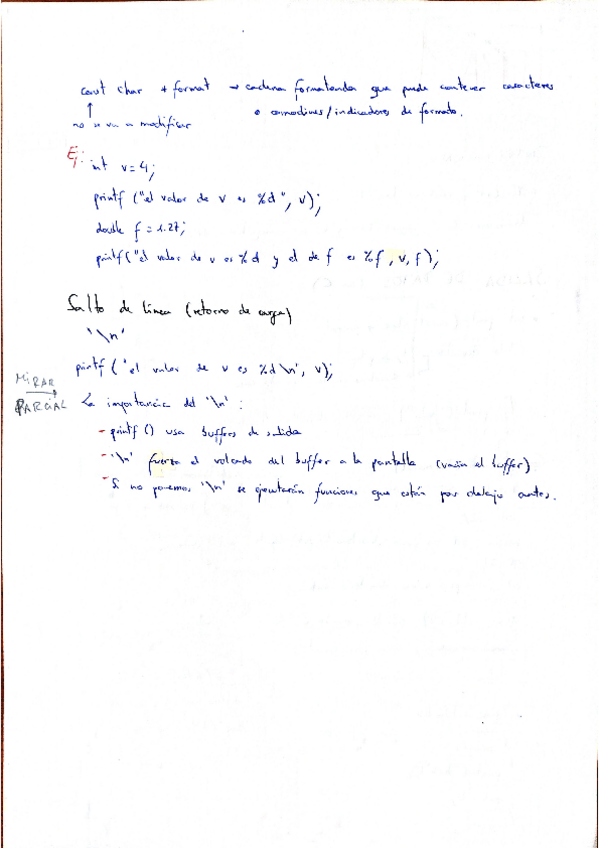 const char *format → cadena formateada que puede contener caracteres
o comodines/indicadores de formato.
no se va a modificar
Ej: int v=4;
printf ("el valor de v es %d", v);
double f = 1.27;
printf("el valor de v es %d y el de f es %f, v, f);
Salto de línea (retorno de carga)
'\n'
printf ("el valor de v es %d\n", v);
MIRAR
PARCIAL
La importancia del '\n' :
- printf () usa buffers de salida
- '\n' fuerza el volcado del buffer a la pantalla (vacía el buffer)
- Si no ponemos '\n' se ejecutarán funciones que están por debajo antes.